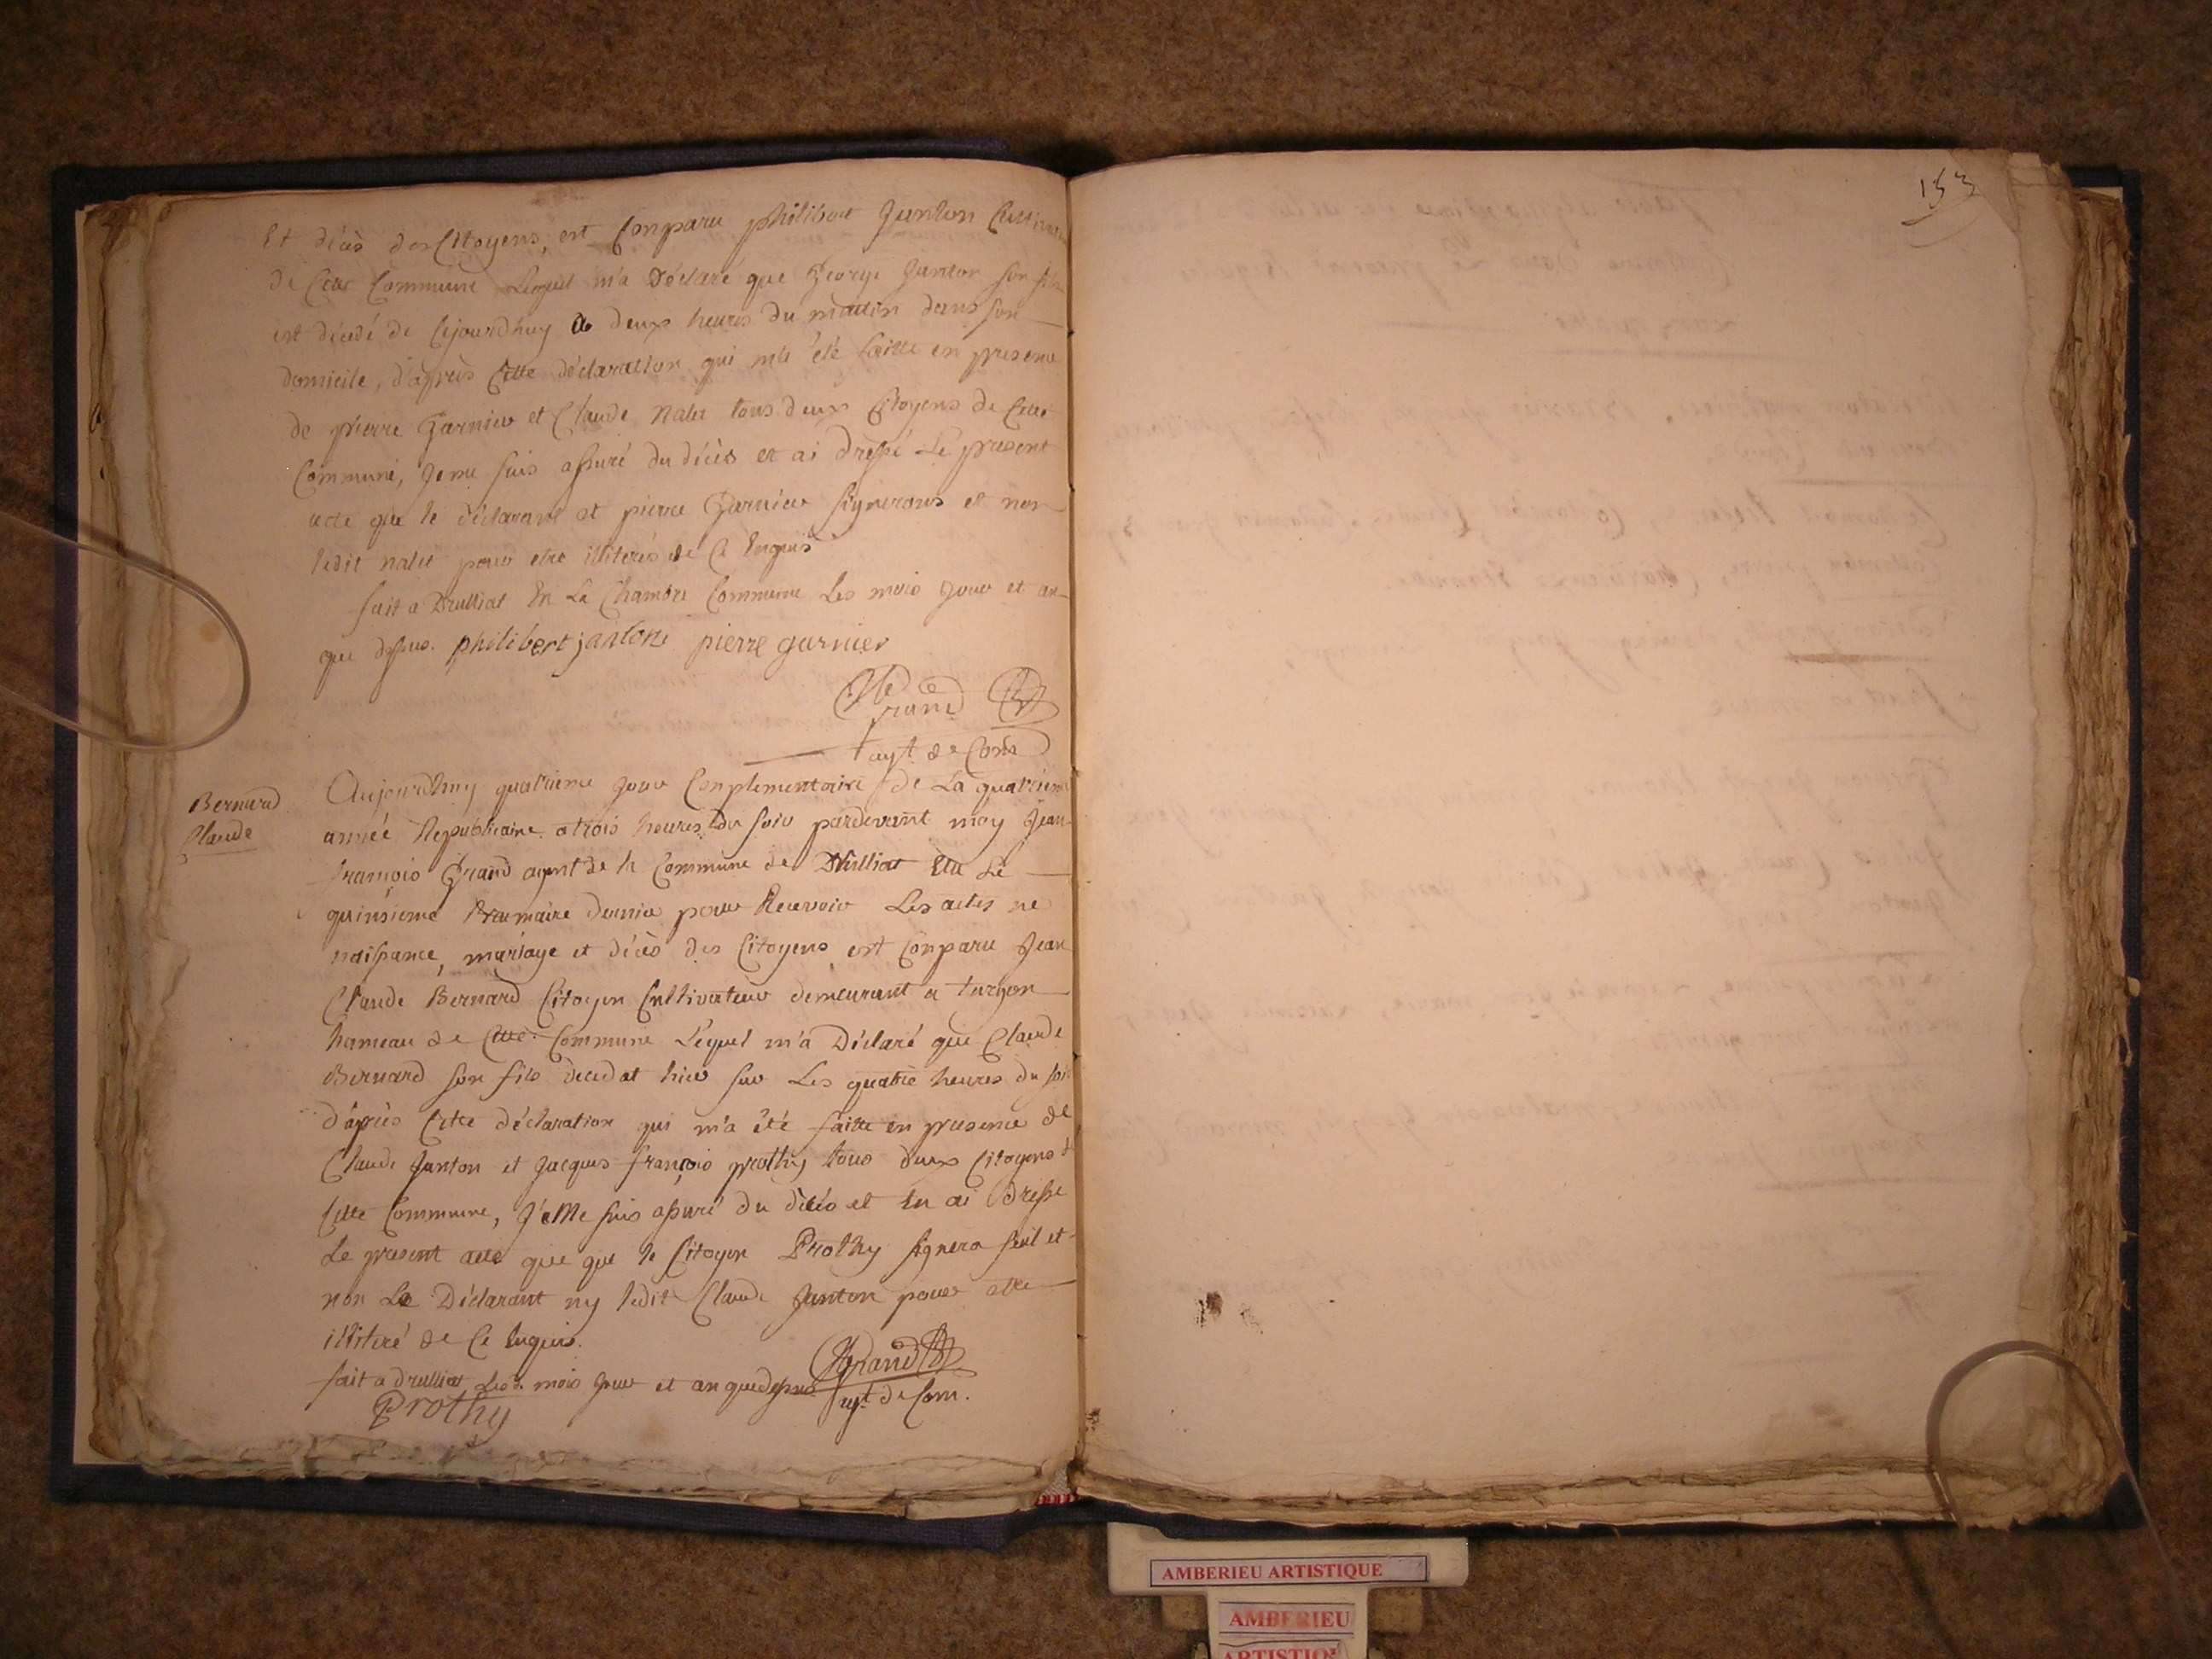 Et décès des Citoyens, est Conparu philibert Janton Cultivateur
de Cette Commune Lequel m'a Déclaré que George Janton son fils
est décedé de Cejourdhuy a deux heures du matin dans son
domicile, d'après Cette déclaration qui m'a été faitte en presence
de pierre Garnier et Claude nalet tous deux Citoyens de Cette
Commune, Je me suis assuré du décès et ai dressé Le present
acte que le déclarant et pierre Garnier signerons et non
ledit nalet pour etre illiterés de Ce Enquis
fait a Drulliat En La Chambre Commune Les mois Jour et an
que dessus. philibert janton pierre garnier
Grand
agt de Com
Bernard
Claude
Aujourdhuy quatrieme Jour Conplementaire de La quatrieme
année Republicaine a trois heures du soir pardevant moy Jean
françois Grand agent de la Commune de Drulliat Elu Le
quinsieme Brumaire dernier pour Recevoir Les actes ne
naissance, mariage et décès des Citoyens est Conparu Jean
Claude Bernard Citoyen Cultivateur demeurant a turgon
hameau de Cette Commune Lequel m'a Déclaré que Claude
Bernard son fils decedat hier sur Les quatre heures du soir
d'après Cette déclaration qui m'a été faitte en presence de
Claude Janton et Jacques françois prothy tous deux Citoyens d
Cette Commune, Je Me suis assuré du décès et En ai Dressé
Le present acte que que le Citoyen Prothy signera seul et
non Le Déclarant ny ledit Claude Janton pour etre
illiteré de Ce Enquis.
fait a drulliat Les mois Jour et an que dessus Grand
Prothy agt de Com.
153
AMBERIEU ARTISTIQUE
AMBERIEU
ARTISTIQ